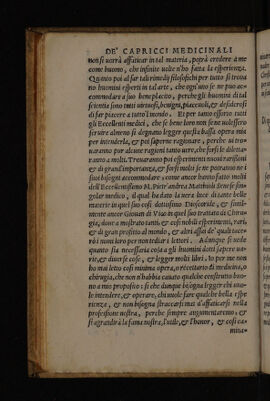 DE' CAPRICCI MEDICINALI
non si uorrà affaticar in tal materia, potrà credere a me
come huomo, che infinite uolte n'ho fatta la esperienza.
Quanto poi al far tal rimedij filosofichi per tutto si troua
no huomini esperti in tal arte, che ogni uno se ne può ac
commodare a suo beneplacito, perche gli huomini di tal
scientia sono tutti uirtuosi, benigni, piaceuoli, & desiderosi
di far piacere a tutto'l mondo. Et per tanto essorto tutti
gli Eccellenti medici, che se bene loro non sene uolessero
seruire almeno si degnano legger questa bassa opera mia
per intenderla, & poi saperne ragionare, perche si troua
ranno poi alcune ragioni tanto uere, che forsi le diletta
ranno a molti. Trouaranno poi esperimenti nuoui rarissimi
& di grand'importanza, & se forsi le mie ragioni non
fussero bisogna accommodare: come anco hanno fatto molti
dell'Eccellentissimo M. Pietr'andrea Matthioli Senese sin-
golar medico, il qual ha dato la uera luce di tante belle
materie in quel suo così dottissimo Dioscoride, & simil-
mente ancor Giouan di Vico in quel suo trattato di Chirur-
gia, doue a mostrato tanti, & così nobili esperimenti, rari
& di gran profitto al mondo, & altri assai de' quali tace-
rò i nomi loro per non tediar i lettori. Adunque si uede
quanto sia necessaria cosa a gli huomini dotti sapere ua-
rie, & diuerse cose, & legger molti libri. Io per me non
ho mai letto così minima opera, o recettario di medicina, o
chirugia, che non n'habbia cauato qualche construtto buo-
no a mio proposito: si che dunque bisogna legger chi uuo-
le intendere, & operare, chi uuole fare qualche bella espe-
rienza, & non bisogna straccarsi mai d'affaticarsi nella
professione nostra, perche sempre augumentaremo, &
si agrandirà la fama nostra, l'utile, & l'honor, & così ca-
mina-